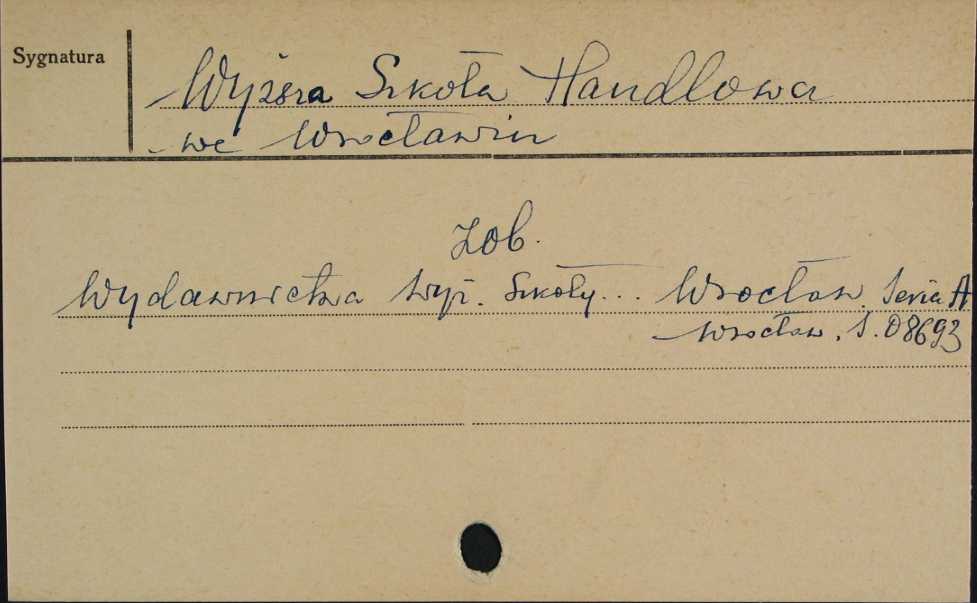 Sygnatura
Wyższa Szkoła Handlowa
we Wrocławiu
Zob.
Wydawnictwa Wyż. Szkoły... Wrocław. Seria A
Wrocław. S. 08693